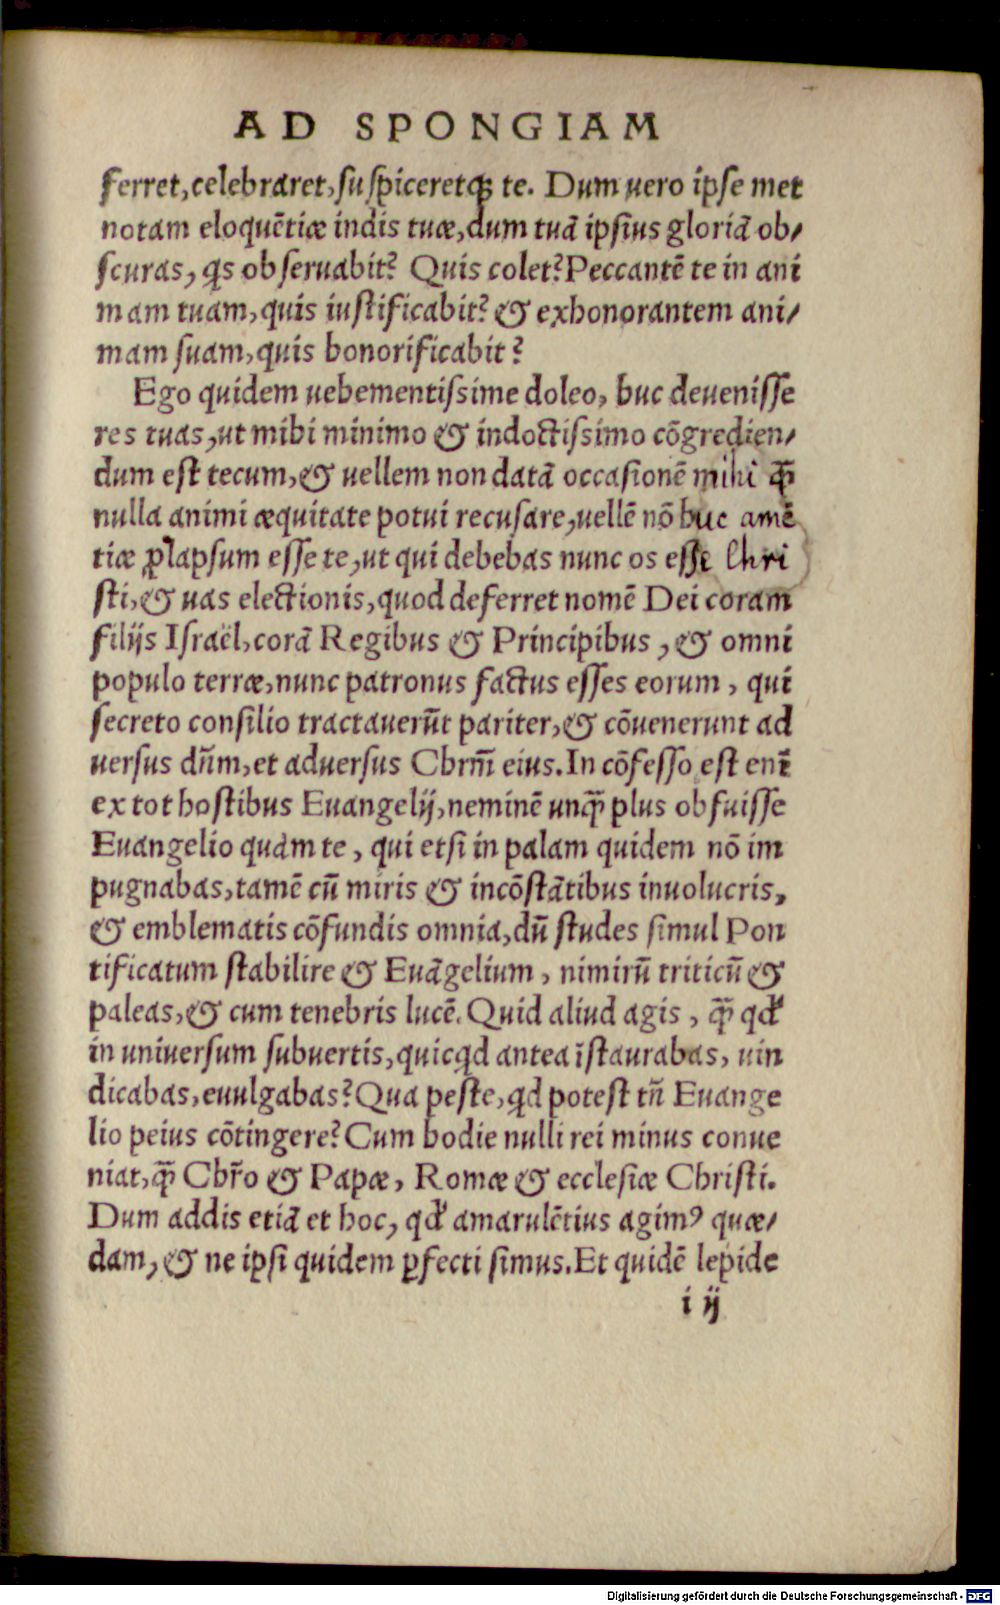 AD SPONGIAM
ferret, celebraret, suspiceretq; te. Dum uero ipse met
notam eloquētiæ indis tuæ, dum tuā ipsius gloriā ob/
scuras, q̃s obseruabit? Quis colet? Peccantē te in ani
mam tuam, quis iustificabit? & exhonorantem ani/
mam suam, quis honorificabit?
Ego quidem uehementissime doleo, huc deuenisse
res tuas, ut mihi minimo & indoctissimo cōgredien/
dum est tecum, & uellem non datā occasionē mihi q̃
nulla animi æquitate potui recusare, uellē nō huc amē
tiæ ꝓlapsum esse te, ut qui debebas nunc os esse Chri
sti, & uas electionis, quod deferret nomē Dei coram
filijs Israël, corā Regibus & Principibus, & omni
populo terræ, nunc patronus factus esses eorum, qui
secreto consilio tractauerūt pariter, & cōuenerunt ad
uersus dñm, et aduersus Chrm̄ eius. In cōfesso est enī
ex tot hostibus Euangelij, neminē unq̃ plus obfuisse
Euangelio quàm te, qui etsi in palam quidem nō im
pugnabas, tamē cū miris & incōstātibus inuolucris,
& emblematis cōfundis omnia, dū studes simul Pon
tificatum stabilire & Euāgelium, nimirū triticū &
paleas, & cum tenebris lucē. Quid aliud agis, q̃ qd̕
in uniuersum subuertis, quicq̃d antea īstaurabas, uin
dicabas, euulgabas? Qua peste, q̃d potest tñ Euange
lio peius cōtingere? Cum hodie nulli rei minus conue
niat, q̃ Chr̄o & Papæ, Romæ & ecclesiæ Christi.
Dum addis etiā et hoc, qd̕ amarulētius agimꝰ quæ/
dam, & ne ipsi quidem ꝑfecti simus. Et quidē lepide
i ij
Digitalisierung gefördert durch die Deutsche Forschungsgemeinschaft - DFG